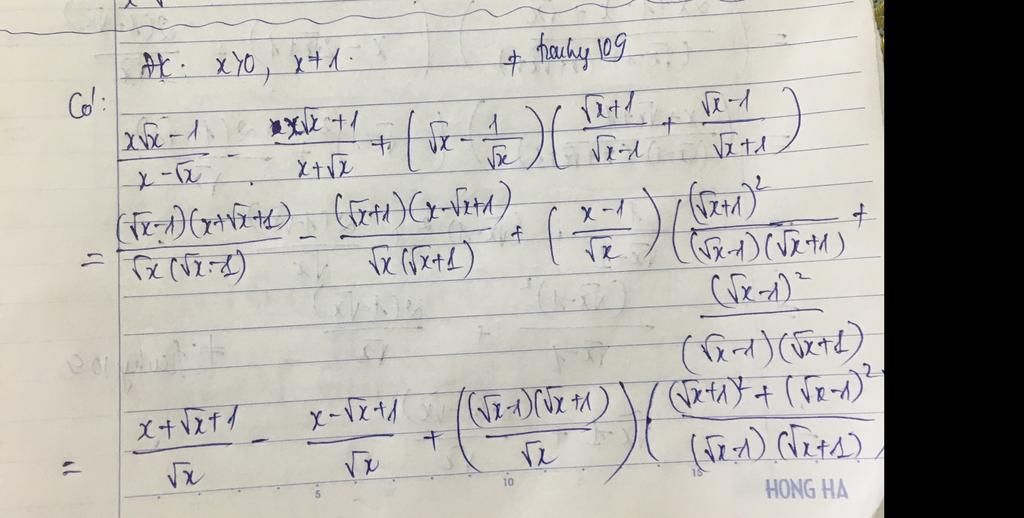 ĐK: x>0, x≠1. + trang 109
Có:
(x√x - 1)/(x - √x) - (x√x + 1)/(x + √x) + (√x - 1/√x)((√x+1)/(√x-1) + (√x-1)/(√x+1))
= ((√x-1)(x+√x+1))/(√x(√x-1)) - ((√x+1)(x-√x+1))/(√x(√x+1)) + ((x-1)/√x)((√x+1)²/((√x-1)(√x+1)) +
(√x-1)²/((√x-1)(√x+1))
= (x+√x+1)/√x - (x-√x+1)/√x + (((√x-1)(√x+1))/√x)(((√x+1)² + (√x-1)²)/((√x-1)(√x+1))
5 10 15
HONG HA